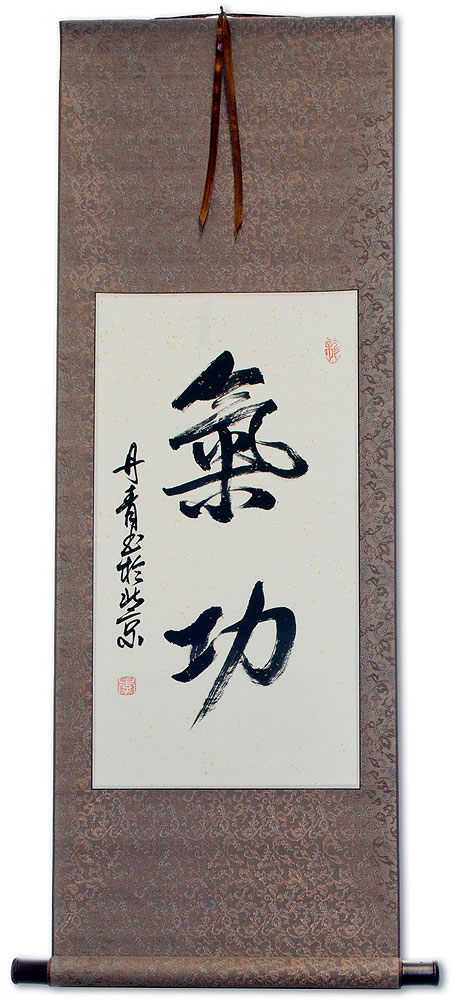 氣功
丹青書於北京